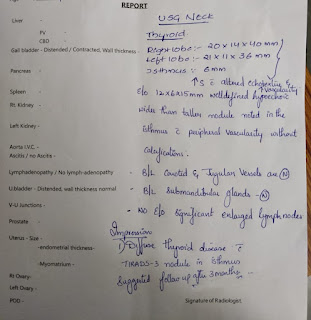 REPORT
USG Neck
Liver -
Thyroid
PV -
CBD
Right lobe :- 20 x 14 x 40 mm
Gall bladder - Distended / Contracted, Wall thickness -
Left lobe :- 21 x 11 x 36 mm
Isthmus :- 6mm
Pancreas -
↑S c̄ altered echogenicity & vascularity
Spleen -
E/o 12x6x15mm welldefined hypoechoic
Rt. Kidney -
wider than taller nodule noted in the
Left Kidney -
Isthmus c̄ peripheral vascularity without
Aorta I.V.C. -
calcifications.
Ascitis / no Ascitis -
Lymphadenopathy / No lymph-adenopathy - - B/L Carotid & Jugular Vessels are (N)
U.bladder - Distended, wall thickness normal - B/L Submandibular glands - (N)
V-U Junctions - - No E/o Significant enlarged lymphnodes
Prostate -
Impression
Uterus - Size -
1) Diffuse thyroid disease c̄
-endometrial thickness-
TIRADS-3 nodule in Isthmus
-Myometrium -
Suggested follow up after 3 months
Rt Ovary-
Left Ovary -
POD -
Signature of Radiologist